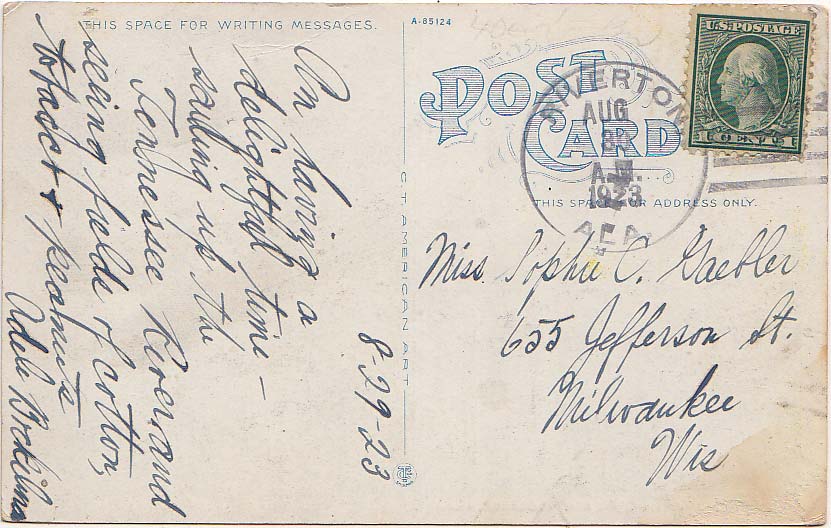 THIS SPACE FOR WRITING MESSAGES.
A-85124
8-29-23
Am having a
delightful time -
sailing up the
Tennessee River and
seeing fields of cotton,
tobacco & peanuts
Adele
C. T. AMERICAN ART
POST
CARD
RIVERTON
AUG
A.M.
1923
ALA.
U.S. POSTAGE
1 CENT 1
THIS SPACE FOR ADDRESS ONLY.
Miss Sophie C. Gaebler
655 Jefferson St.
Milwaukee
Wis